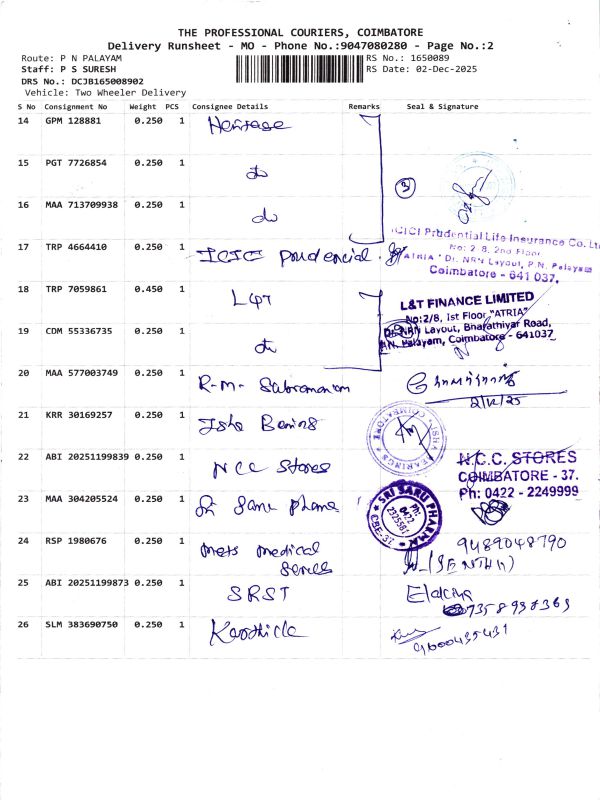 THE PROFESSIONAL COURIERS, COIMBATORE
Delivery Runsheet - MO - Phone No.:9047080280 - Page No.:2
Route: P N PALAYAM
RS No.: 1650089
Staff: P S SURESH
RS Date: 02-Dec-2025
DRS No.: DCJB165008902
Vehicle: Two Wheeler Delivery
S No Consignment No Weight PCS Consignee Details Remarks Seal & Signature
14 GPM 128881 0.250 1 Heritage
15 PGT 7726854 0.250 1 do
16 MAA 713709938 0.250 1 do
3
ICICI Prudential Life Insurance Co. Lt
No: 2/8, 2nd Floor
17 TRP 4664410 0.250 1 ICICI prudencial
"ATRIA" Dr. NRN Layout, P.N. Palayam
Coimbatore - 641 037.
18 TRP 7059861 0.450 1 L&T
L&T FINANCE LIMITED
No:2/8, Ist Floor "ATRIA"
19 CDM 55336735 0.250 1 do
Dr. NRN Layout, Bharathiyar Road,
P.N. Palayam, Coimbatore - 641037
20 MAA 577003749 0.250 1 R.M. Subramaniam
2/12/25
21 KRR 30169257 0.250 1 Isha Bearings
ISHA BEARINGS * COIMBATORE *
22 ABI 20251199839 0.250 1 NCC Stores
N.C.C. STORES
COIMBATORE - 37.
Ph: 0422 - 2249999
23 MAA 304205524 0.250 1 Sri Saru pharma
SRI SARU PHARMA
Ph:
0422
CBE-37
24 RSP 1980676 0.250 1 Mets medical
9489048790
(SENTHIL)
25 ABI 20251199873 0.250 1 SRST
7358938369
26 SLM 383690750 0.250 1 Karthick
9600435431